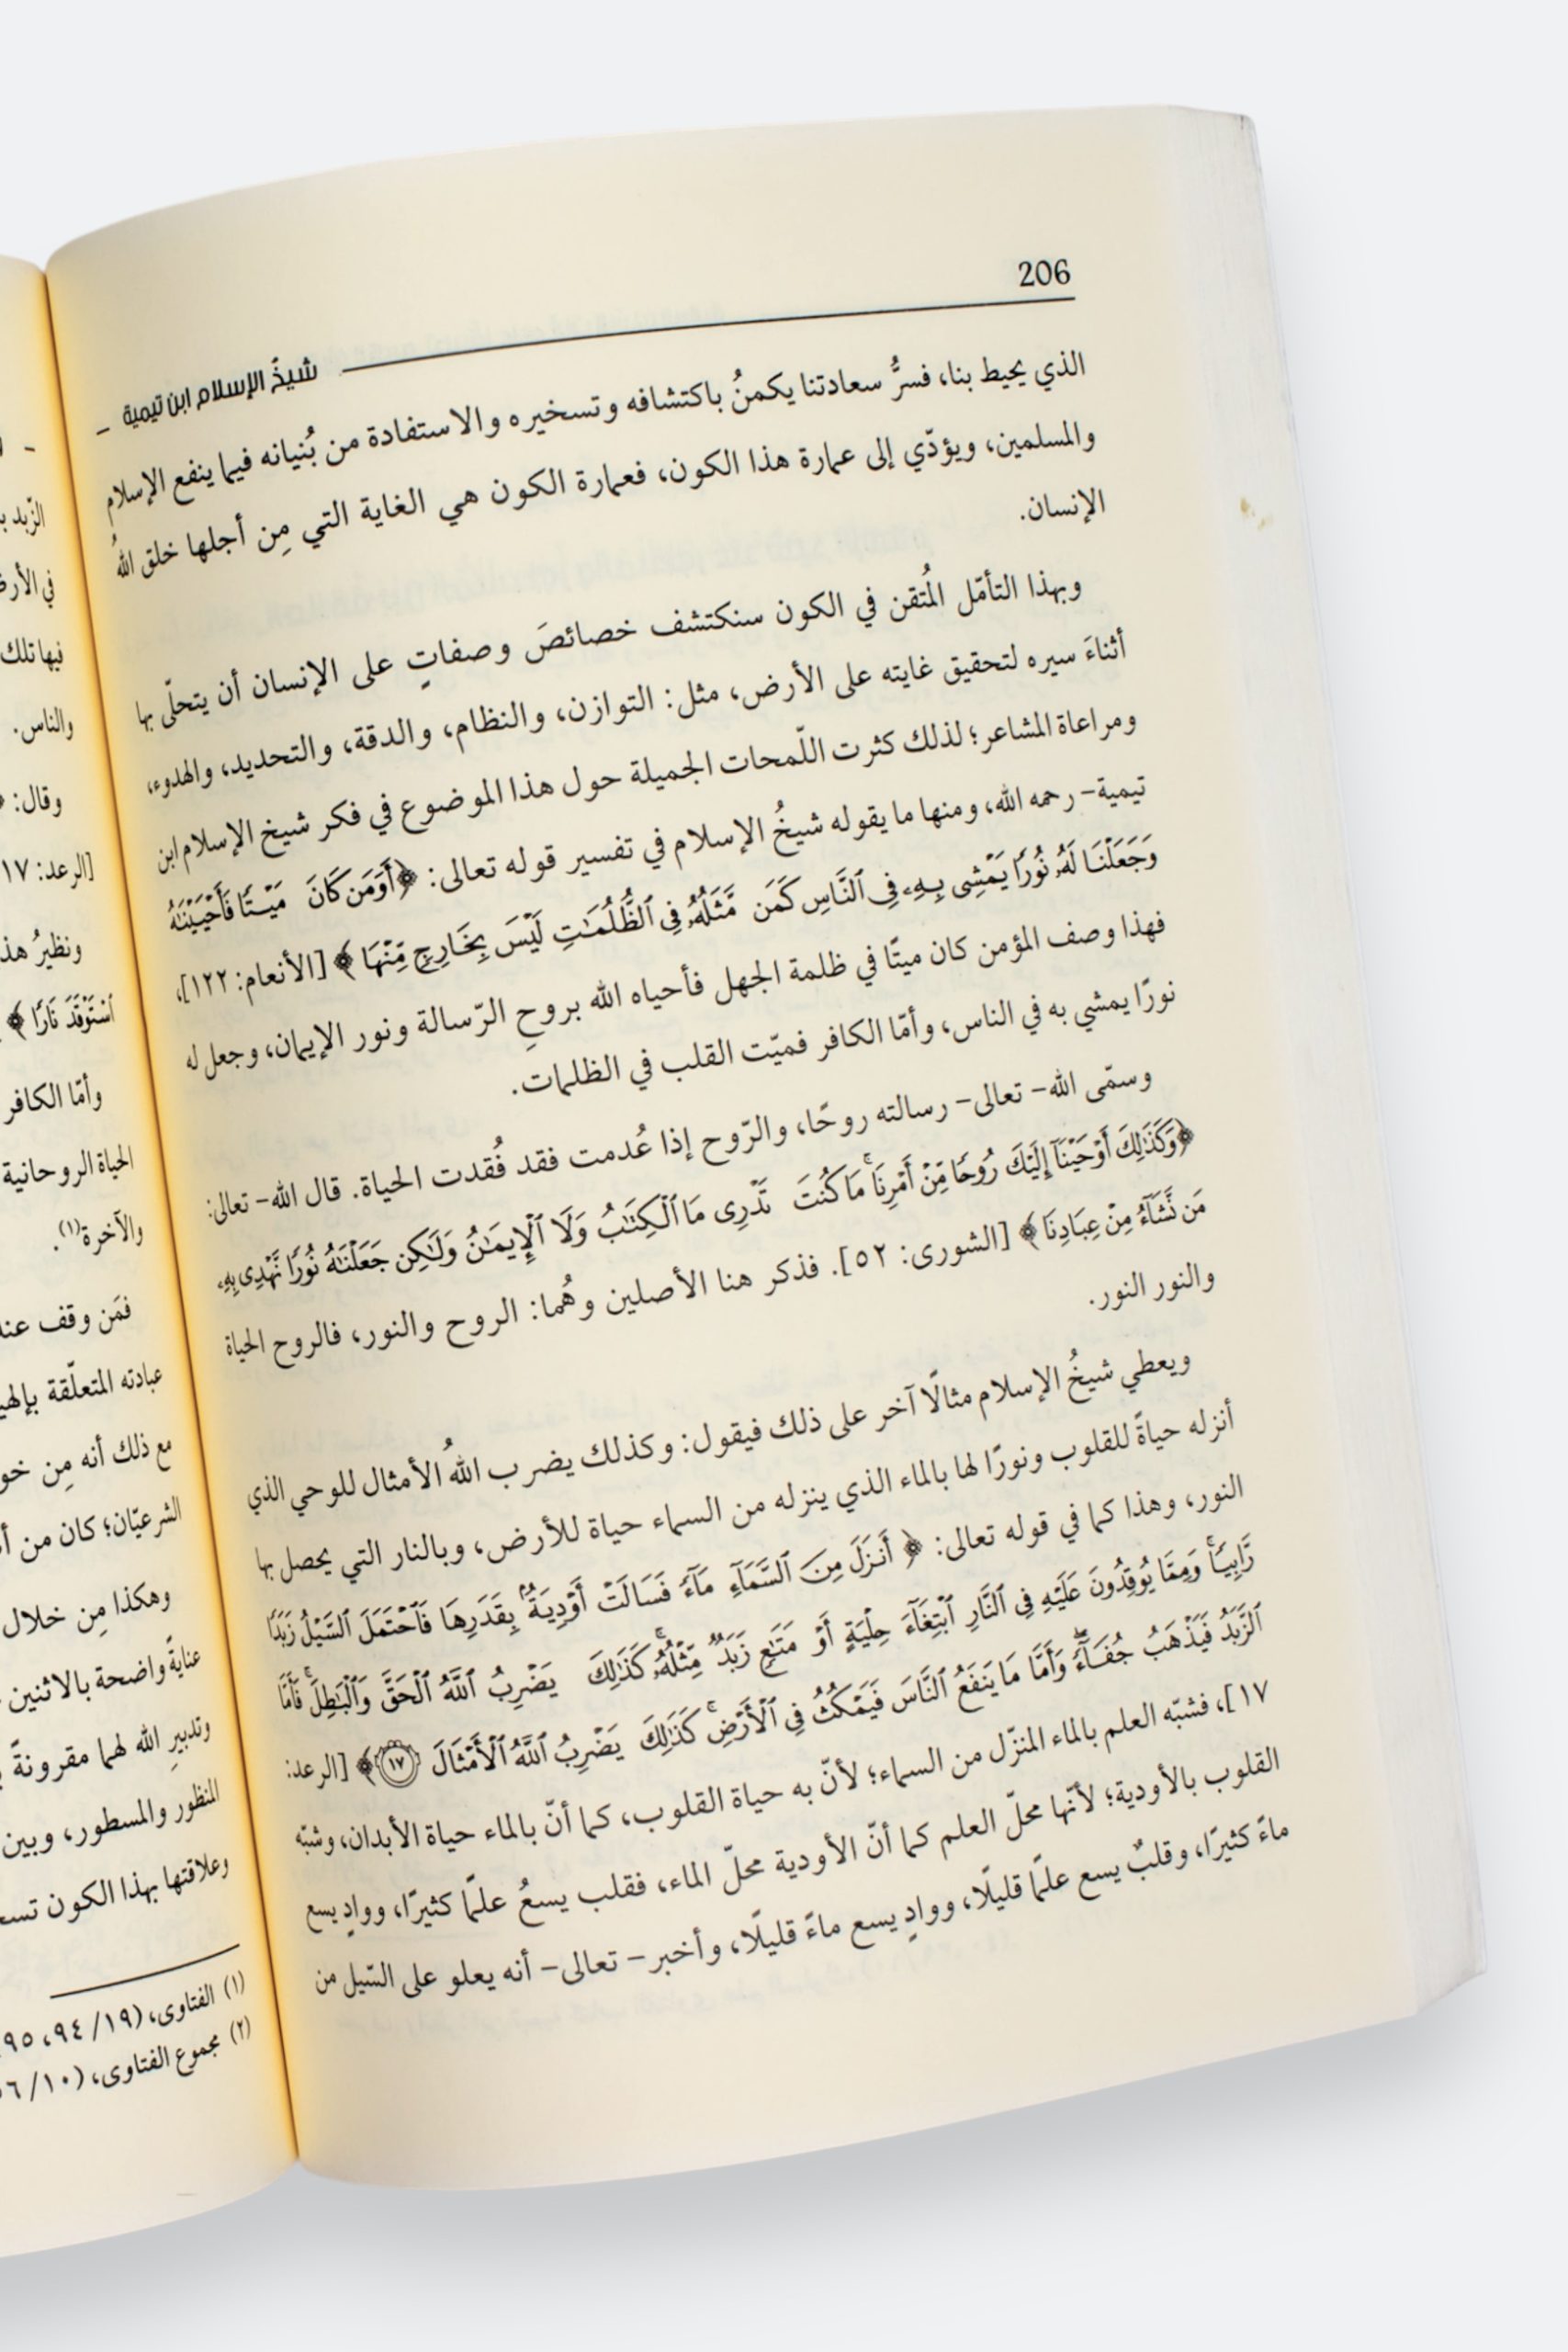 206
شيخُ الإسلام ابن تيمية –
الذي يحيط بنا، فسرُّ سعادتنا يكمنُ باكتشافه وتسخيره والاستفادة من بُنيانه فيما ينفع الإسلام
والمسلمين، ويؤدّي إلى عمارة هذا الكون، فعمارة الكون هي الغاية التي مِن أجلها خلق اللهُ
الإنسان.
وبهذا التأمّل المُتقن في الكون سنكتشف خصائصَ وصفاتٍ على الإنسان أن يتحلّى بها
أثناءَ سيره لتحقيق غايته على الأرض، مثل: التوازن، والنظام، والدقة، والتحديد، والهدوء،
ومراعاة المشاعر؛ لذلك كثرت اللّمحات الجميلة حول هذا الموضوع في فكر شيخ الإسلام ابن
تيمية- رحمه الله، ومنها ما يقوله شيخُ الإسلام في تفسير قوله تعالى: ﴿أَوَمَن كَانَ مَيْتًا فَأَحْيَيْنَٰهُ
وَجَعَلْنَا لَهُۥ نُورًا يَمْشِى بِهِۦ فِى ٱلنَّاسِ كَمَن مَّثَلُهُۥ فِى ٱلظُّلُمَٰتِ لَيْسَ بِخَارِجٍ مِّنْهَا ﴾ [الأنعام: ١٢٢]،
فهذا وصف المؤمن كان ميتًا في ظلمة الجهل فأحياه الله بروحِ الرّسالة ونور الإيمان، وجعل له
نورًا يمشي به في الناس، وأمّا الكافر فميّت القلب في الظلمات.
وسمّى الله- تعالى- رسالته روحًا، والرّوح إذا عُدمت فقد فُقدت الحياة. قال الله- تعالى:
﴿وَكَذَٰلِكَ أَوْحَيْنَآ إِلَيْكَ رُوحًا مِّنْ أَمْرِنَا ۚ مَا كُنتَ تَدْرِى مَا ٱلْكِتَٰبُ وَلَا ٱلْإِيمَٰنُ وَلَٰكِن جَعَلْنَٰهُ نُورًا نَّهْدِى بِهِۦ
مَن نَّشَآءُ مِنْ عِبَادِنَا ﴾ [الشورى: ٥٢]. فذكر هنا الأصلين وهُما: الروح والنور، فالروح الحياة
والنور النور.
ويعطي شيخُ الإسلام مثالًا آخر على ذلك فيقول: وكذلك يضرب اللهُ الأمثال للوحي الذي
أنزله حياةً للقلوب ونورًا لها بالماء الذي ينزله من السماء حياة للأرض، وبالنار التي يحصل بها
النور، وهذا كما في قوله تعالى: ﴿ أَنزَلَ مِنَ ٱلسَّمَآءِ مَآءً فَسَالَتْ أَوْدِيَةٌۢ بِقَدَرِهَا فَٱحْتَمَلَ ٱلسَّيْلُ زَبَدًا
رَّابِيًا ۚ وَمِمَّا يُوقِدُونَ عَلَيْهِ فِى ٱلنَّارِ ٱبْتِغَآءَ حِلْيَةٍ أَوْ مَتَٰعٍ زَبَدٌ مِّثْلُهُۥ ۚ كَذَٰلِكَ يَضْرِبُ ٱللَّهُ ٱلْحَقَّ وَٱلْبَٰطِلَ ۚ فَأَمَّا
ٱلزَّبَدُ فَيَذْهَبُ جُفَآءً ۖ وَأَمَّا مَا يَنفَعُ ٱلنَّاسَ فَيَمْكُثُ فِى ٱلْأَرْضِ ۚ كَذَٰلِكَ يَضْرِبُ ٱللَّهُ ٱلْأَمْثَالَ ١٧﴾ [الرعد:
١٧]، فشبّه العلم بالماء المنزّل من السماء؛ لأنّ به حياة القلوب، كما أنّ بالماء حياة الأبدان، وشبّه
القلوب بالأودية؛ لأنّها محلّ العلم كما أنّ الأودية محلّ الماء، فقلب يسعُ علمًا كثيرًا، ووادٍ يسع
ماءً كثيرًا، وقلبٌ يسع علمًا قليلًا، ووادٍ يسع ماءً قليلًا، وأخبر- تعالى- أنه يعلو على السّيل من
الزّبد
في
فيها تلك
والناس.
وقال:
[الرعد: ١٧
ونظيرُ
ٱسْتَوْقَدَ نَارًا ﴾
وأمّا الكافر
الحياة الروحانية
والآخرة(١).
فمَن وقف
عبادته المتعلّقة
مع ذلك أنه مِن
الشرعيّان؛ كان من
وهكذا مِن خلال
عنايةً واضحة بالاثنين
وتدبيرِ الله لهما مقرونةً
المنظور والمسطور، وبين
وعلاقتها بهذا الكون
(١) الفتاوى، (١٩/ ٩٤، ٩٥
(٢) مجموع الفتاوى، (١٠/